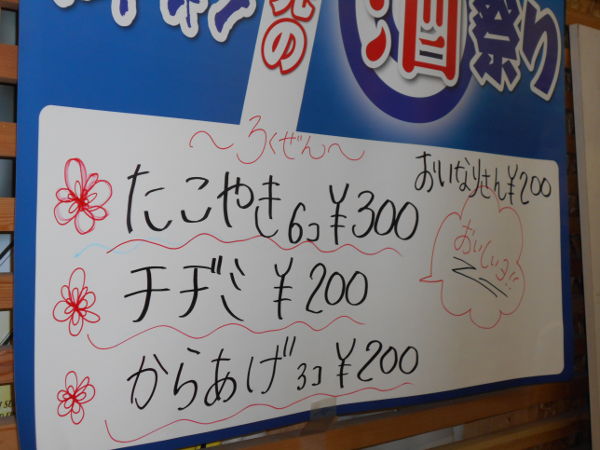 の
酒祭り
～ろくぜん～
たこやき6コ ¥300
おいなりさん¥200
おいしいヨ!!
チヂミ ¥200
からあげ3コ ¥200